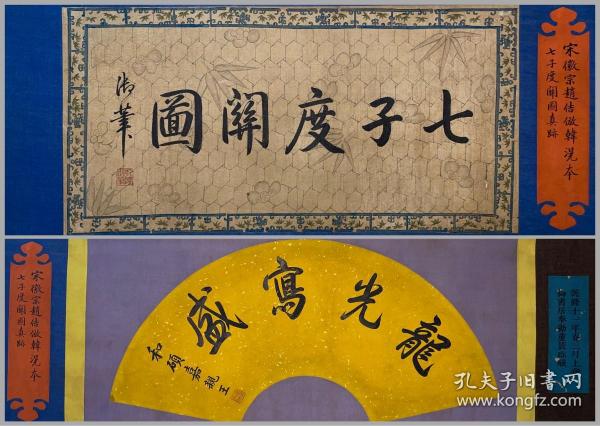 七子度關圖
御筆
宋徽宗趙佶倣韓滉本
七子度關圖真跡
宋徽宗趙佶倣韓滉本
七子度關圖真跡
龍光寫盛
和碩嘉親王
孔夫子旧书网
www.kongfz.com